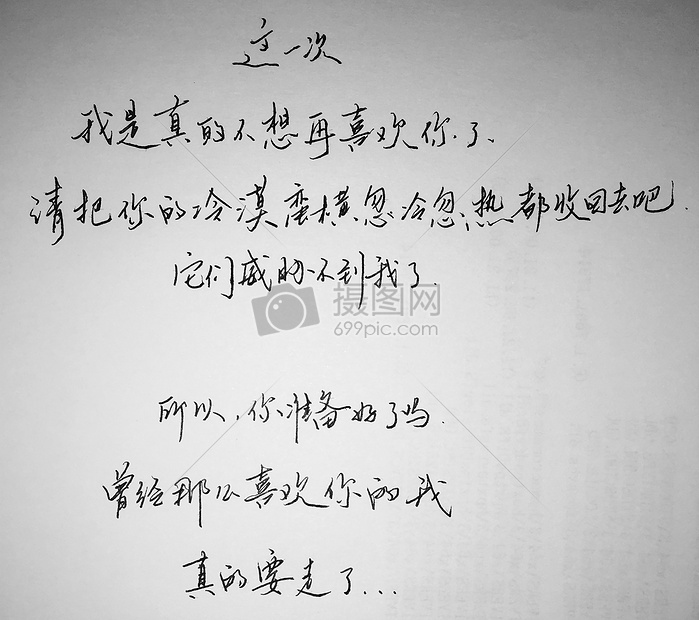 这一次
我是真的不想再喜欢你了、
请把你的冷漠蛮横忽冷忽热都收回去吧.
它们威胁不到我了.
摄图网
699pic.com
所以,你准备好了吗.
曾经那么喜欢你的我
真的要走了...